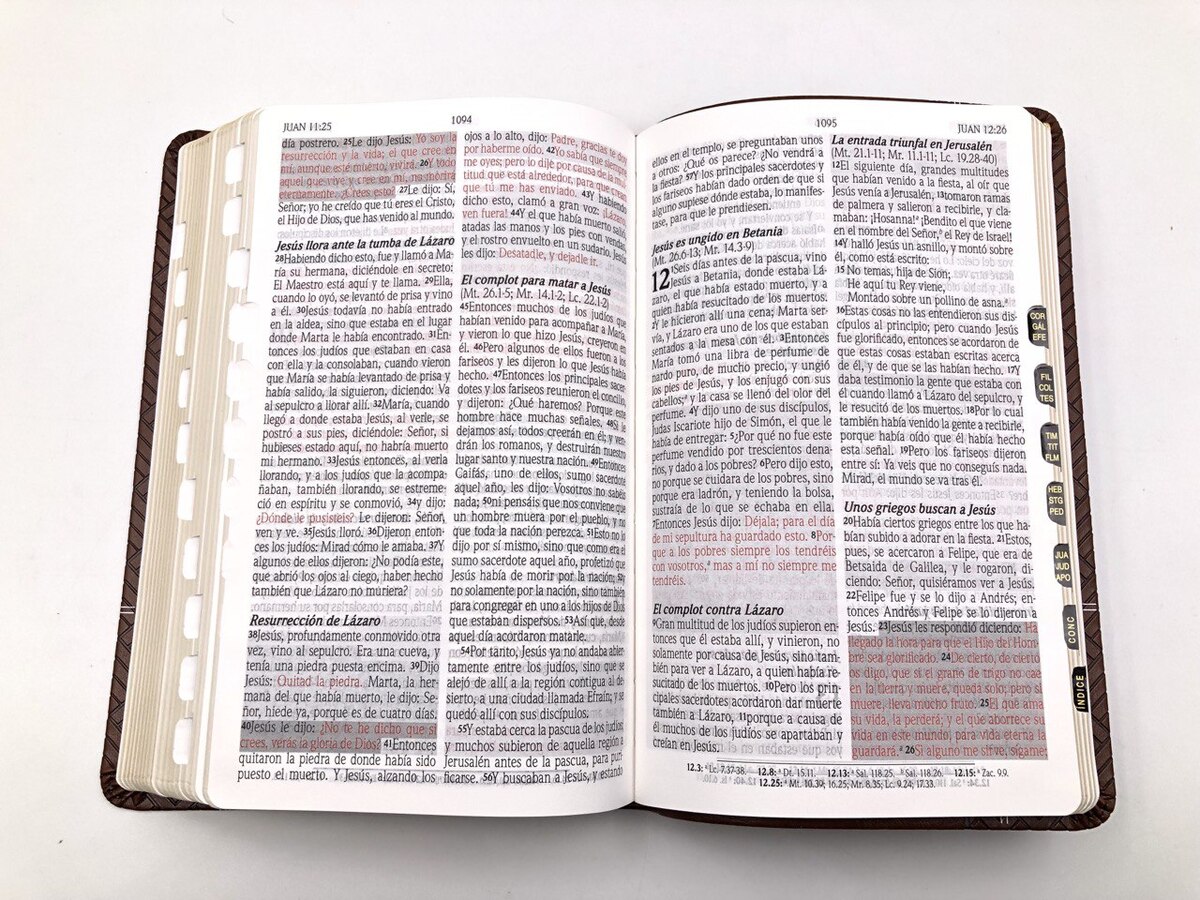 JUAN 11:25
1094
día postrero. 25Le dijo Jesús: Yo soy la
resurrección y la vida; el que cree en
mí, aunque esté muerto, vivirá. 26Y todo
aquel que vive y cree en mí, no morirá
eternamente. ¿Crees esto? 27Le dijo: Sí,
Señor; yo he creído que tú eres el Cristo,
el Hijo de Dios, que has venido al mundo.
Jesús llora ante la tumba de Lázaro
28Habiendo dicho esto, fue y llamó a Ma-
ría su hermana, diciéndole en secreto:
El Maestro está aquí y te llama. 29Ella,
cuando lo oyó, se levantó de prisa y vino
a él. 30Jesús todavía no había entrado
en la aldea, sino que estaba en el lugar
donde Marta le había encontrado. 31En-
tonces los judíos que estaban en casa
con ella y la consolaban, cuando vieron
que María se había levantado de prisa y
había salido, la siguieron, diciendo: Va
al sepulcro a llorar allí. 32María, cuando
llegó a donde estaba Jesús, al verle, se
postró a sus pies, diciéndole: Señor, si
hubieses estado aquí, no habría muerto
mi hermano. 33Jesús entonces, al verla
llorando, y a los judíos que la acompa-
ñaban, también llorando, se estreme-
ció en espíritu y se conmovió, 34y dijo:
¿Dónde le pusisteis? Le dijeron: Señor,
ven y ve. 35Jesús lloró. 36Dijeron enton-
ces los judíos: Mirad cómo le amaba. 37Y
algunos de ellos dijeron: ¿No podía este,
que abrió los ojos al ciego, haber hecho
también que Lázaro no muriera?
Resurrección de Lázaro
38Jesús, profundamente conmovido otra
vez, vino al sepulcro. Era una cueva, y
tenía una piedra puesta encima. 39Dijo
Jesús: Quitad la piedra. Marta, la her-
mana del que había muerto, le dijo: Se-
ñor, hiede ya, porque es de cuatro días.
40Jesús le dijo: ¿No te he dicho que si
crees, verás la gloria de Dios? 41Entonces
quitaron la piedra de donde había sido
puesto el muerto. Y Jesús, alzando los
ojos a lo alto, dijo: Padre, gracias te doy
por haberme oído. 42Yo sabía que siempre
me oyes; pero lo dije por causa de la mul-
titud que está alrededor, para que crean
que tú me has enviado. 43Y habiendo
dicho esto, clamó a gran voz: ¡Lázaro,
ven fuera! 44Y el que había muerto salió,
atadas las manos y los pies con vendas,
y el rostro envuelto en un sudario. Jesús
les dijo: Desatadle, y dejadle ir.
El complot para matar a Jesús
(Mt. 26.1-5; Mr. 14.1-2; Lc. 22.1-2)
45Entonces muchos de los judíos que
habían venido para acompañar a María,
y vieron lo que hizo Jesús, creyeron en
él. 46Pero algunos de ellos fueron a los
fariseos y les dijeron lo que Jesús había
hecho. 47Entonces los principales sacer-
dotes y los fariseos reunieron el concilio,
y dijeron: ¿Qué haremos? Porque este
hombre hace muchas señales. 48Si le
dejamos así, todos creerán en él; y ven-
drán los romanos, y destruirán nuestro
lugar santo y nuestra nación. 49Entonces
Caifás, uno de ellos, sumo sacerdote
aquel año, les dijo: Vosotros no sabéis
nada; 50ni pensáis que nos conviene que
un hombre muera por el pueblo, y no
que toda la nación perezca. 51Esto no lo
dijo por sí mismo, sino que como era el
sumo sacerdote aquel año, profetizó que
Jesús había de morir por la nación; 52y
no solamente por la nación, sino también
para congregar en uno a los hijos de Dios
que estaban dispersos. 53Así que, desde
aquel día acordaron matarle.
54Por tanto, Jesús ya no andaba abier-
tamente entre los judíos, sino que se
alejó de allí a la región contigua al de-
sierto, a una ciudad llamada Efraín; y se
quedó allí con sus discípulos.
55Y estaba cerca la pascua de los judíos;
y muchos subieron de aquella región a
Jerusalén antes de la pascua, para puri-
ficarse. 56Y buscaban a Jesús, y estando
1095
JUAN 12:26
ellos en el templo, se preguntaban unos
a otros: ¿Qué os parece? ¿No vendrá a
la fiesta? 57Y los principales sacerdotes y
los fariseos habían dado orden de que si
alguno supiese dónde estaba, lo manifes-
tase, para que le prendiesen.
Jesús es ungido en Betania
(Mt. 26.6-13; Mr. 14.3-9)
12 1Seis días antes de la pascua, vino
Jesús a Betania, donde estaba Lá-
zaro, el que había estado muerto, y a
quien había resucitado de los muertos.
2Y le hicieron allí una cena; Marta ser-
vía, y Lázaro era uno de los que estaban
sentados a la mesa con él. 3Entonces
María tomó una libra de perfume de
nardo puro, de mucho precio, y ungió
los pies de Jesús, y los enjugó con sus
cabellos;a y la casa se llenó del olor del
perfume. 4Y dijo uno de sus discípulos,
Judas Iscariote hijo de Simón, el que le
había de entregar: 5¿Por qué no fue este
perfume vendido por trescientos denarios,
y dado a los pobres? 6Pero dijo esto,
no porque se cuidara de los pobres, sino
porque era ladrón, y teniendo la bolsa,
sustraía de lo que se echaba en ella.
7Entonces Jesús dijo: Déjala; para el día
de mi sepultura ha guardado esto. 8Por-
que a los pobres siempre los tendréis
con vosotros,a mas a mí no siempre me
tendréis.
El complot contra Lázaro
9Gran multitud de los judíos supieron en-
tonces que él estaba allí, y vinieron, no
solamente por causa de Jesús, sino tam-
bién para ver a Lázaro, a quien había re-
sucitado de los muertos. 10Pero los prin-
cipales sacerdotes acordaron dar muerte
también a Lázaro, 11porque a causa de
él muchos de los judíos se apartaban y
creían en Jesús.
La entrada triunfal en Jerusalén
(Mt. 21.1-11; Mr. 11.1-11; Lc. 19.28-40)
12El siguiente día, grandes multitudes
que habían venido a la fiesta, al oír que
Jesús venía a Jerusalén, 13tomaron ramas
de palmera y salieron a recibirle, y cla-
maban: ¡Hosanna!a ¡Bendito el que viene
en el nombre del Señor,b el Rey de Israel!
14Y halló Jesús un asnillo, y montó sobre
él, como está escrito:
15No temas, hija de Sión;
He aquí tu Rey viene,
Montado sobre un pollino de asna.a
16Estas cosas no las entendieron sus dis-
cípulos al principio; pero cuando Jesús
fue glorificado, entonces se acordaron de
que estas cosas estaban escritas acerca
de él, y de que se las habían hecho. 17Y
daba testimonio la gente que estaba con
él cuando llamó a Lázaro del sepulcro, y
le resucitó de los muertos. 18Por lo cual
también había venido la gente a recibirle,
porque había oído que él había hecho
esta señal. 19Pero los fariseos dijeron
entre sí: Ya veis que no conseguís nada.
Mirad, el mundo se va tras él.
Unos griegos buscan a Jesús
20Había ciertos griegos entre los que ha-
bían subido a adorar en la fiesta. 21Estos,
pues, se acercaron a Felipe, que era de
Betsaida de Galilea, y le rogaron, di-
ciendo: Señor, quisiéramos ver a Jesús.
22Felipe fue y se lo dijo a Andrés; en-
tonces Andrés y Felipe se lo dijeron a
Jesús. 23Jesús les respondió diciendo: Ha
llegado la hora para que el Hijo del Hom-
bre sea glorificado. 24De cierto, de cierto
os digo, que si el grano de trigo no cae
en la tierra y muere, queda solo; pero si
muere, lleva mucho fruto. 25El que ama
su vida, la perderá; y el que aborrece su
vida en este mundo, para vida eterna la
guardará.a 26Si alguno me sirve, sígame;
12.3: a Lc. 7.37-38. 12.8: a Dt. 15.11. 12.13: a Sal. 118.25. b Sal. 118.26. 12.15: a Zac. 9.9.
12.25: a Mt. 10.39; 16.25; Mr. 8.35; Lc. 9.24; 17.33.
COR
GÁL
EFE
FIL
COL
TES
TIM
TIT
FLM
HEB
STG
PED
JUA
JUD
APO
CONC
ÍNDICE